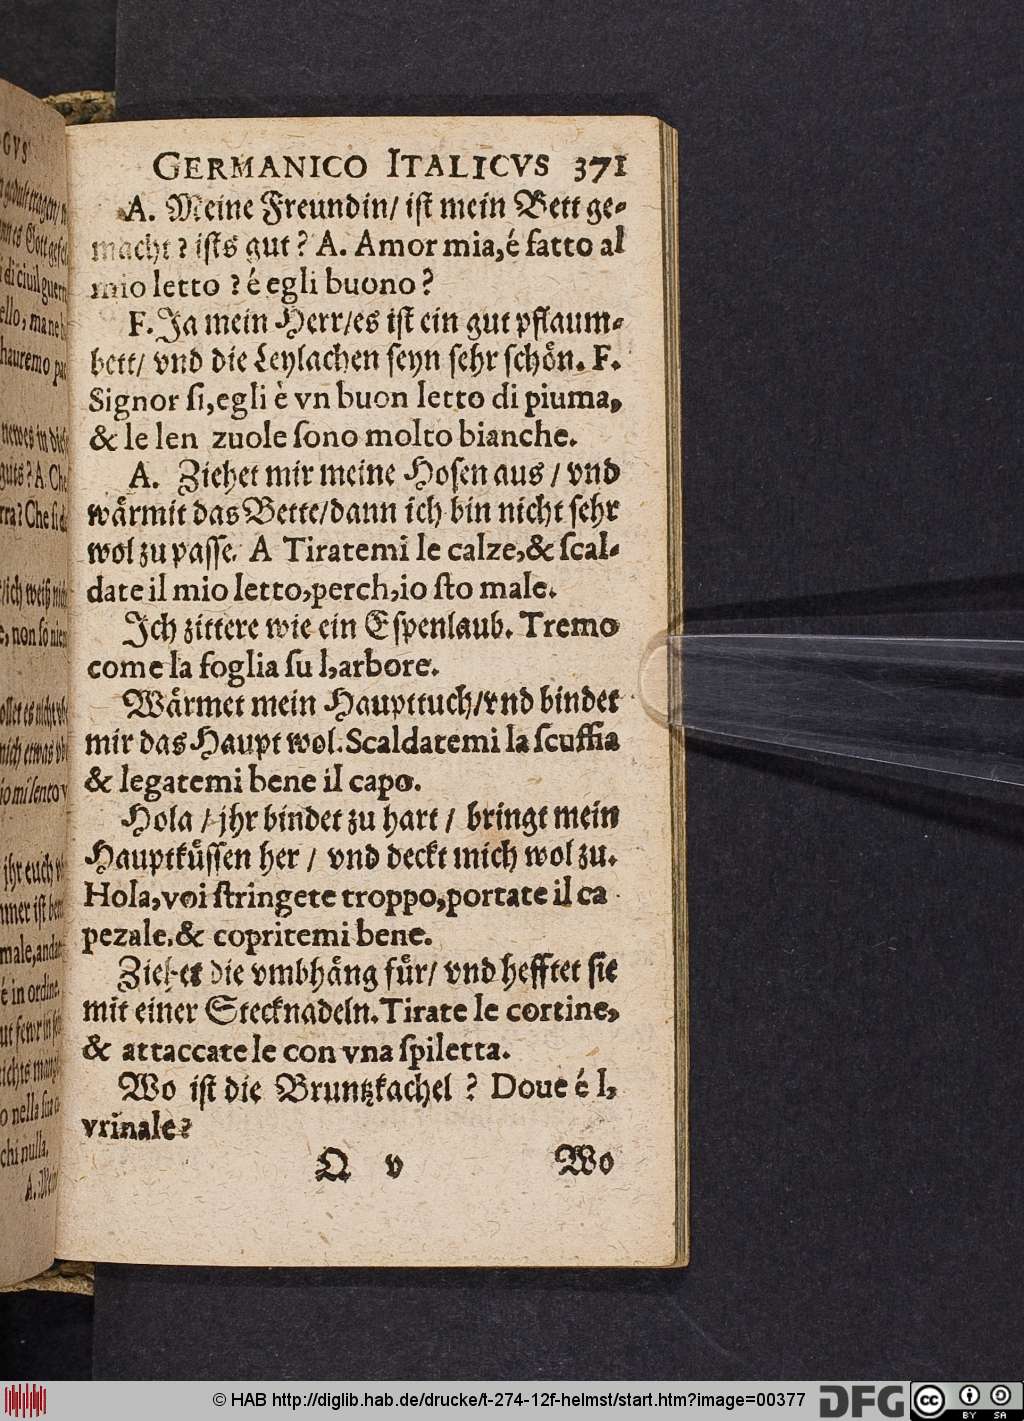 GERMANICO ITALICVS 371
A. Meine Freundin/ iſt mein Bett ge-
macht? iſts gut? A. Amor mia,é fatto al
mio letto ? é egli buono?
F. Ja mein Herr/es iſt ein gut pflaum-
bett/ vnd die Leylachen ſeyn ſehr ſchoͤn. F.
Signor ſi,egli è vn buon letto di piuma,
& le len zuole ſono molto bianche.
A. Ziehet mir meine Hoſen aus / vnd
waͤrmit das Bette/dann ich bin nicht ſehr
wol zu paſſe. A Tiratemi le calze,& ſcal-
date il mio letto,perch,io ſto male.
Ich zittere wie ein Eſpenlaub. Tremo
come la foglia ſu l,arbore.
Waͤrmet mein Haupttuch/vnd bindet
mir das Haupt wol.Scaldatemi la ſcuffia
& legatemi bene il capo.
Hola / jhr bindet zu hart / bringt mein
Hauptkuͤſſen her / vnd deckt mich wol zu.
Hola,voi ſtringete troppo,portate il ca
pezale.& copritemi bene.
Ziehet die vmbhaͤng fuͤr/ vnd hefftet ſie
mit einer Stecknadeln.Tirate le cortine,
& attaccate le con vna ſpiletta.
Wo iſt die Bruntzkachel ? Doue é l,
vrinale?
Q v Wo
© HAB http://diglib.hab.de/drucke/t-274-12f-helmst/start.htm?image=00377 DFG cc BY SA